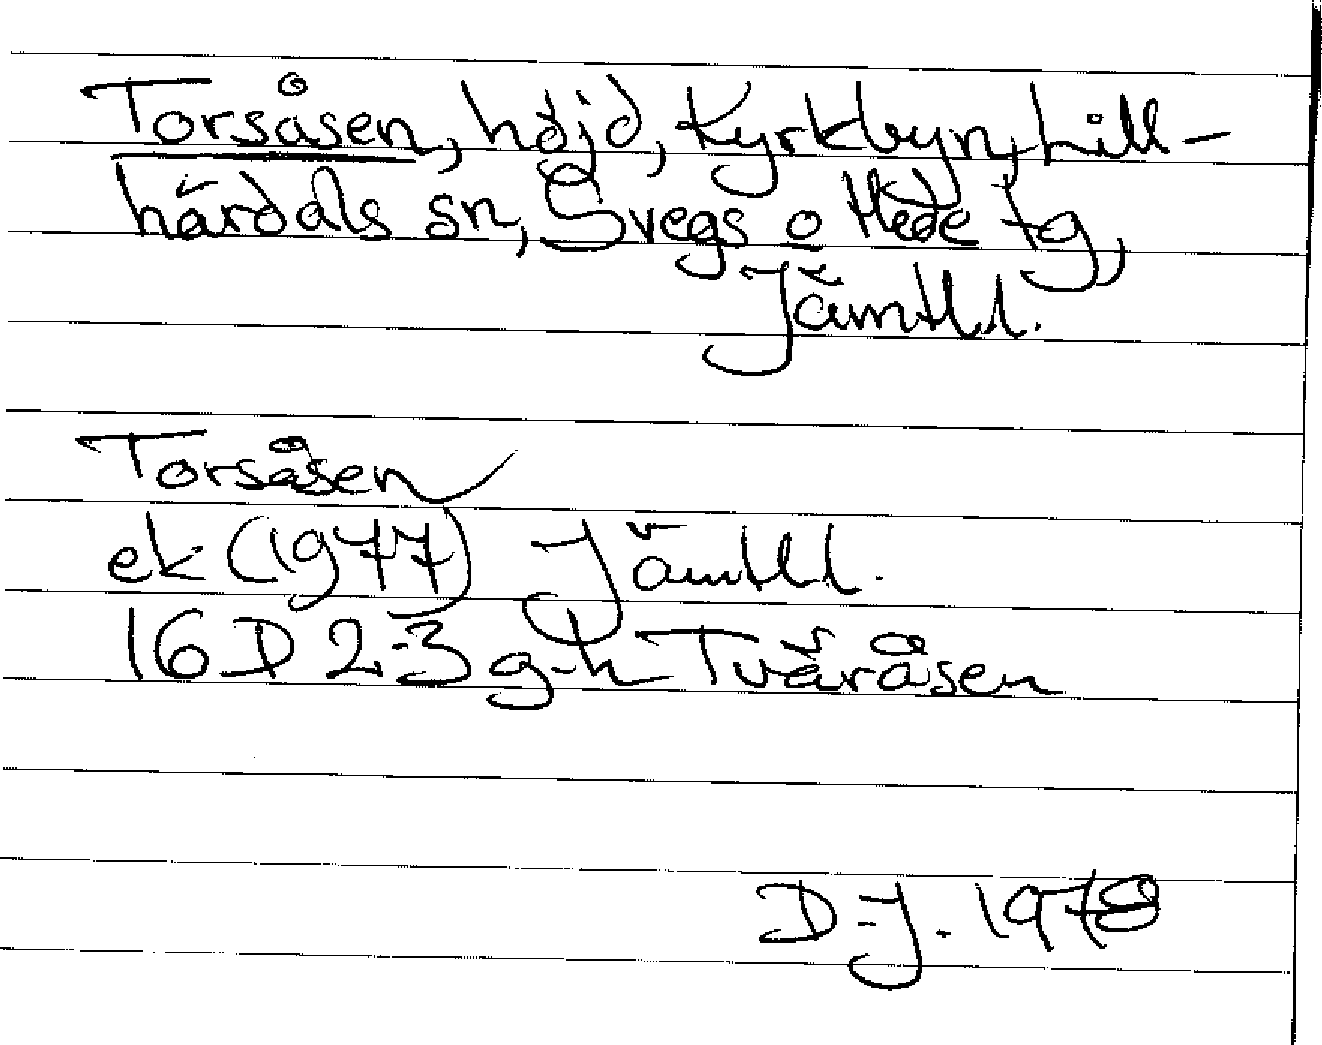 Torsåsen, höjd, Kyrkbyn, Lill-
härdals sn, Svegs o Hede tg,
Jämtl l.
Torsåsen
ek (1977) Jämtl l.
16D 2-3 g-h Tväråsen
D-J. 1978